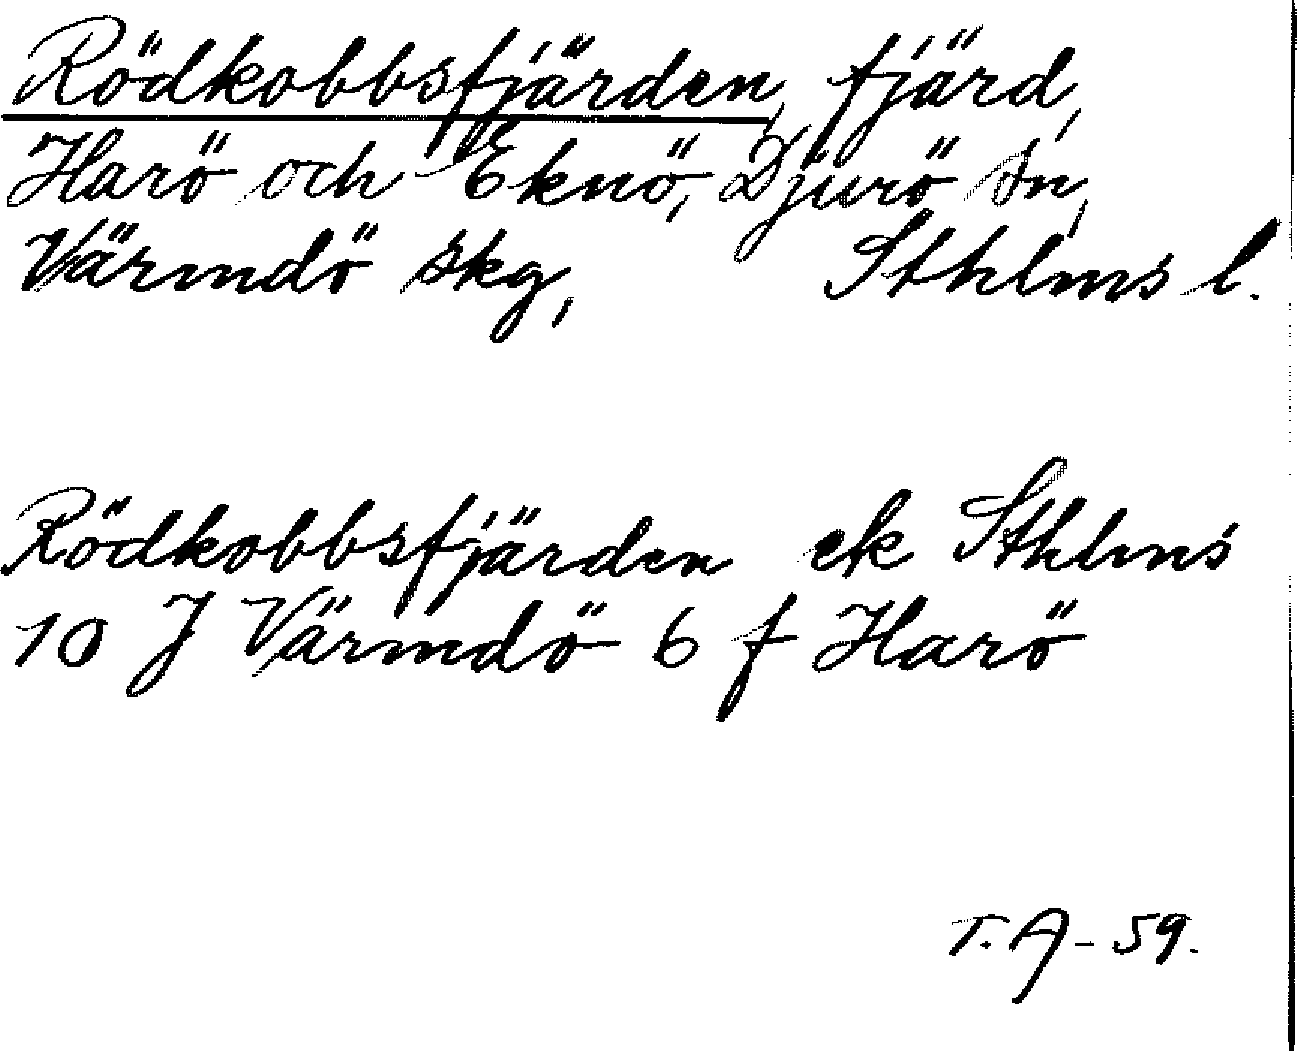 Rödkobbsfjärden, fjärd,
Harö och Eknö, Djurö sn,
Värmdö skg, Sthlms l.
Rödkobbsfjärden ek Sthlms
10 J Värmdö 6 f Harö
T.A-59.